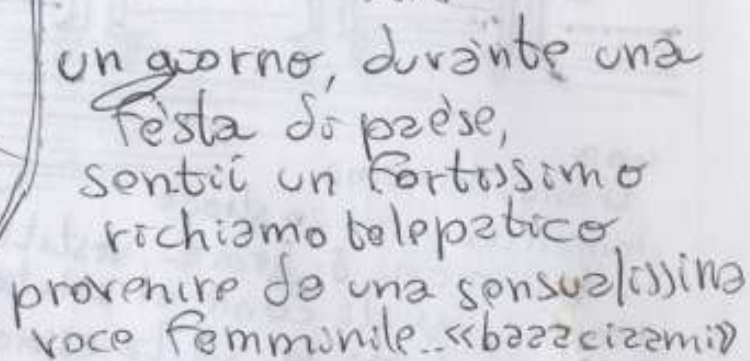 un giorno, durante una
festa di paese,
sentii un fortissimo
richiamo telepatico
provenire da una sensualissima
voce femminile..«baaaciaami»